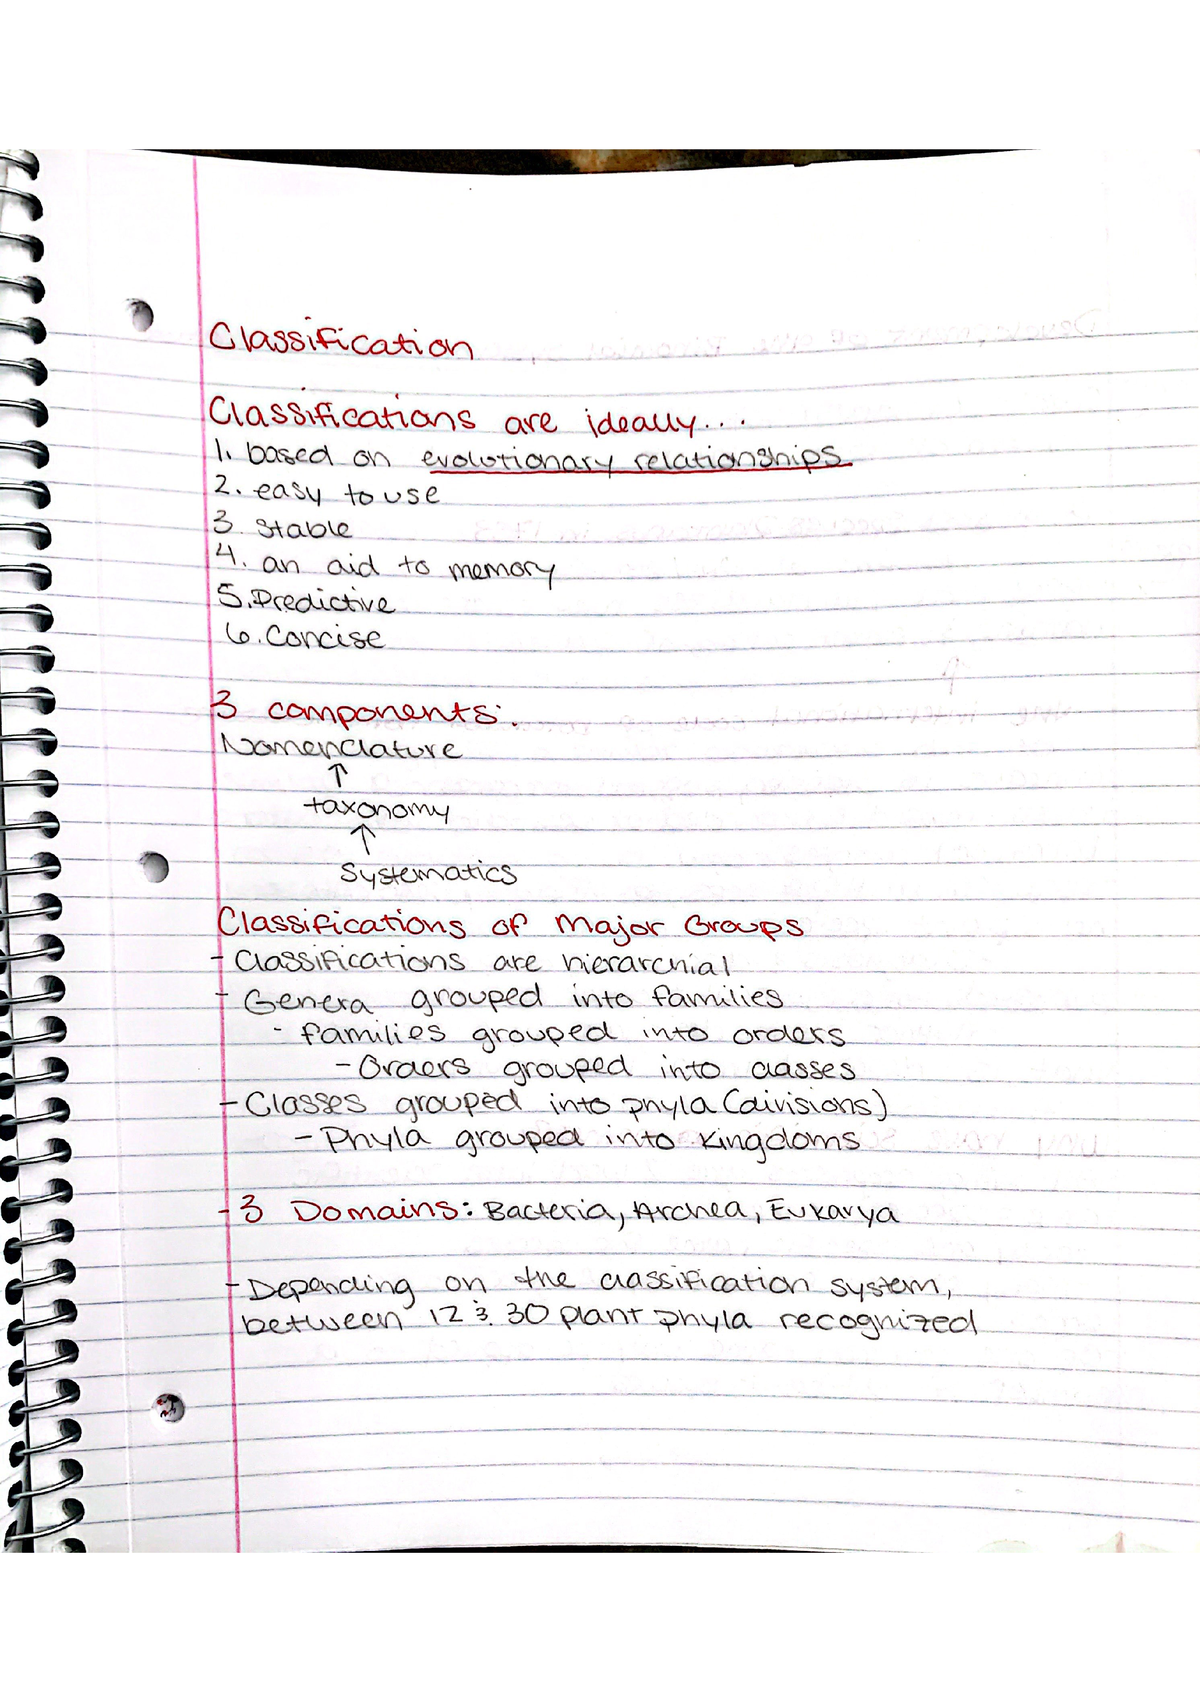 Classification
Classifications are ideally...
1. based on evolutionary relationships
2. easy to use
3. Stable
4. an aid to memory
5. Predictive
6. Concise
3 components:.
Nomenclature
↑
taxonomy
↑
Systematics
Classifications of Major Groups
- Classifications are hierarchial
- Genera grouped into families
- families grouped into orders
- Orders grouped into classes
- Classes grouped into phyla (divisions)
- Phyla grouped into Kingdoms
- 3 Domains: Bacteria, Archea, Eukarya
- Depending on the classification system,
between 12 & 30 plant phyla recognized